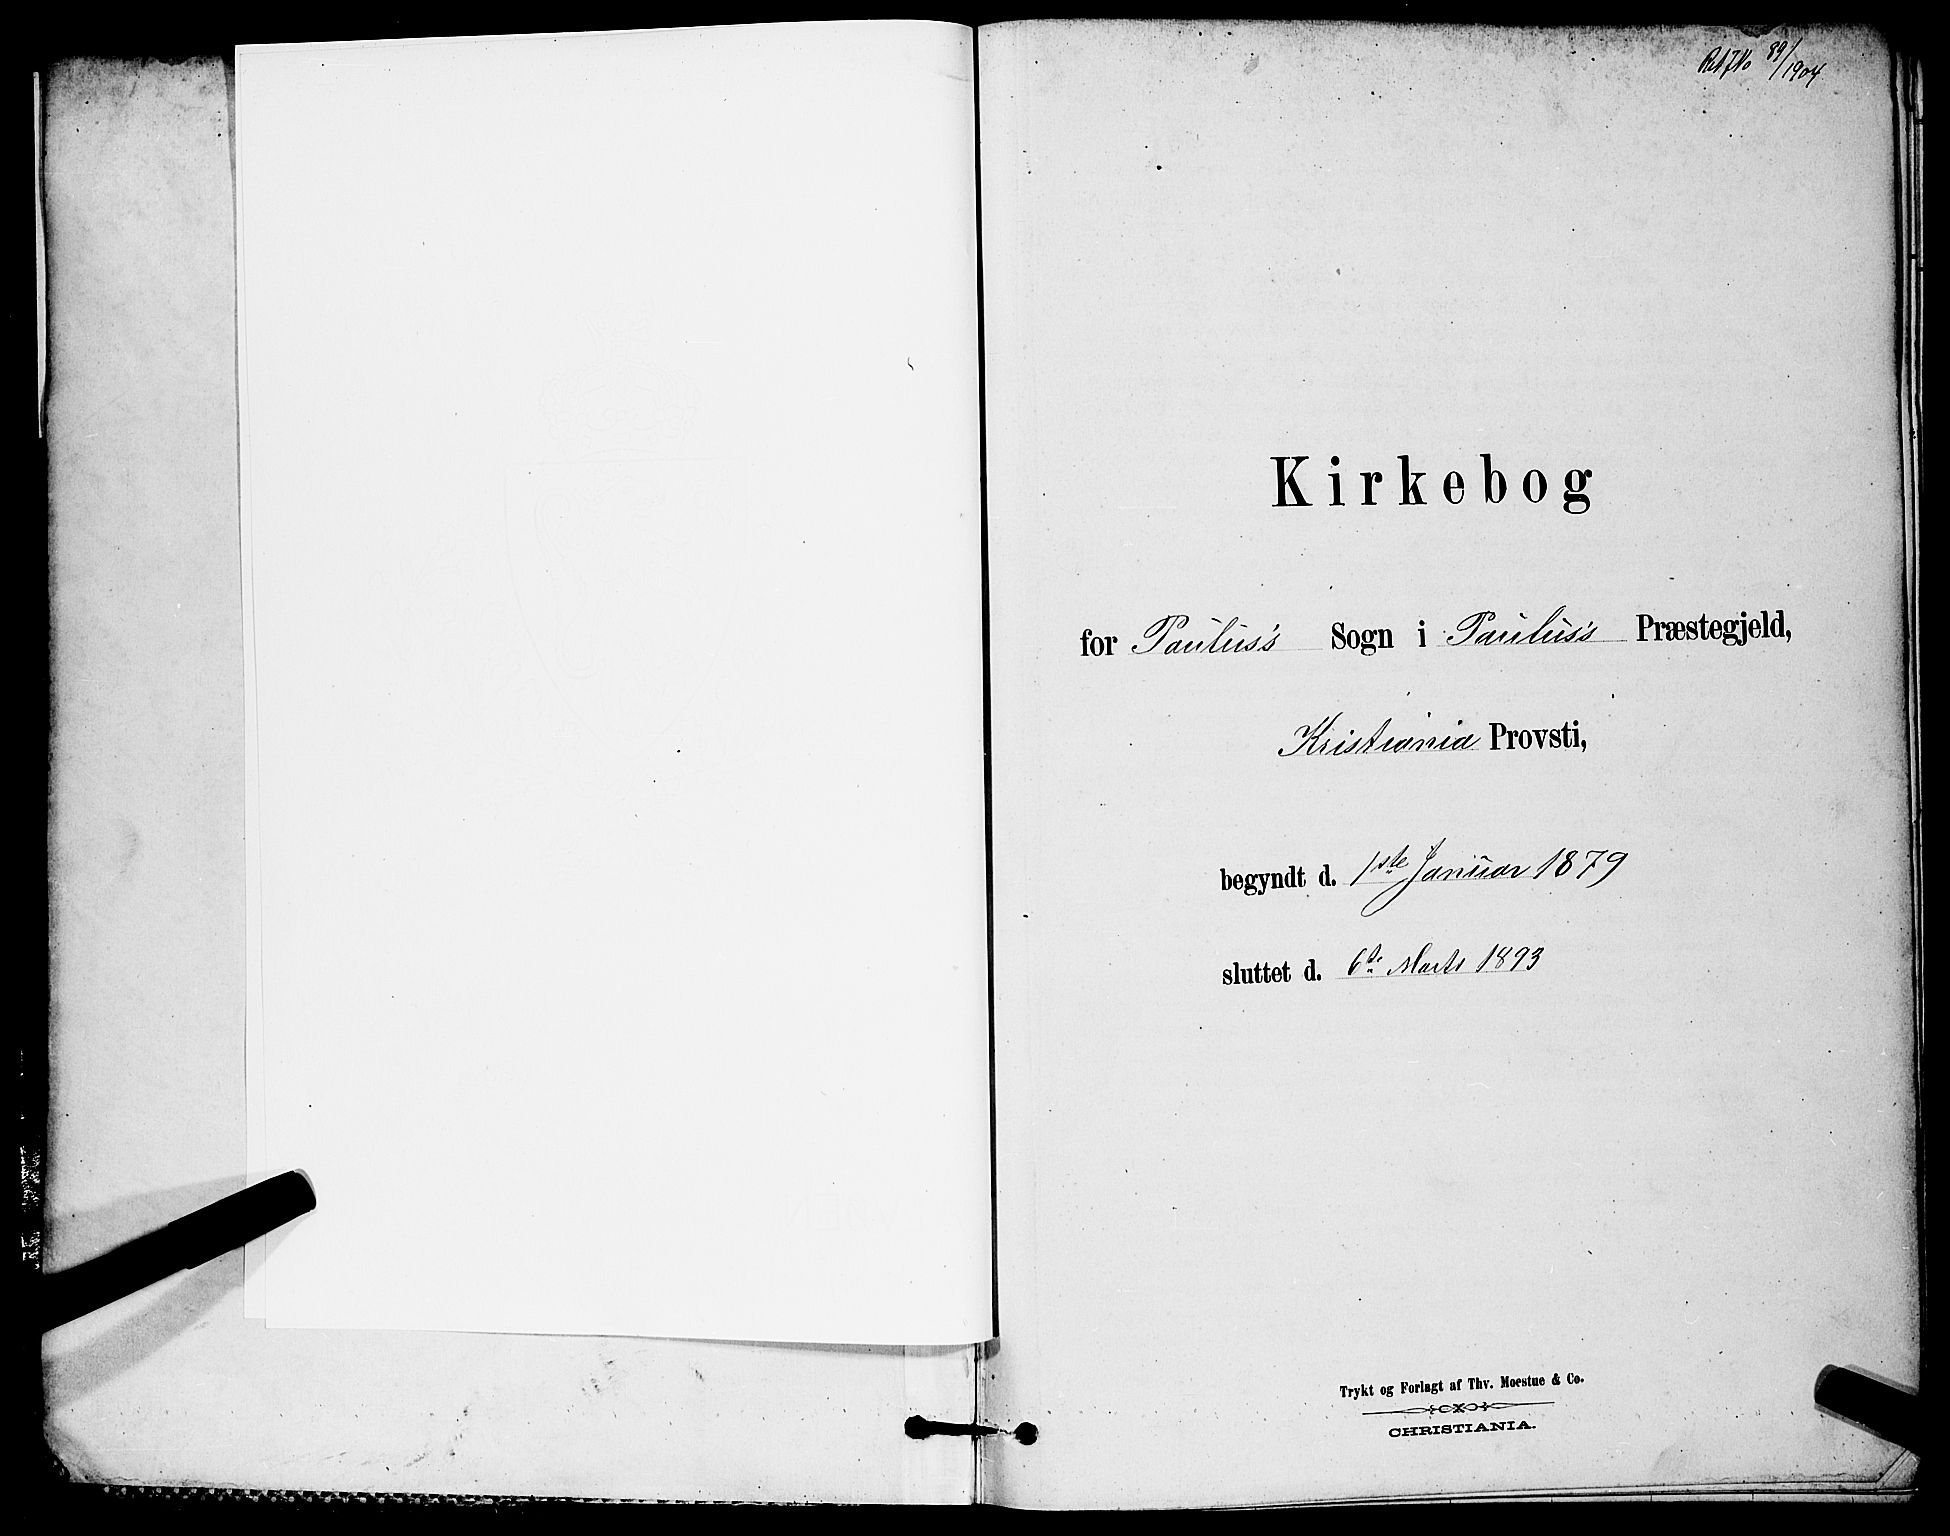 89/1904
Kirkebog
for Paulus's Sogn i Paulus's Præstegjeld,
Kristiania Provsti,
begyndt d. 1ste Januar 1879
sluttet d. 6te Marts 1893
Trykt og Forlagt af Thv. Moestue & Co.
CHRISTIANIA.